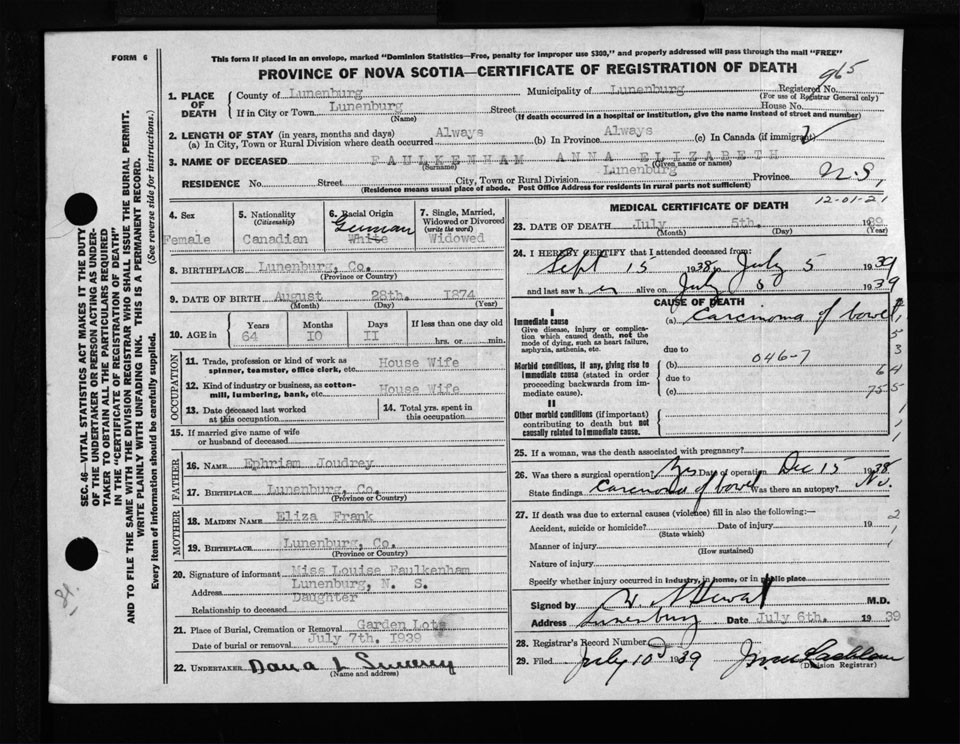 FORM 6
This form if placed in an envelope, marked "Dominion Statistics—Free, penalty for improper use $300," and properly addressed will pass through the mail "FREE"
PROVINCE OF NOVA SCOTIA—CERTIFICATE OF REGISTRATION OF DEATH
965
1. PLACE OF DEATH
County of Lunenburg Municipality of Lunenburg Registered No.
(For use of Registrar General only)
If in City or Town Lunenburg Street House No.
(Name) (If death occurred in a hospital or institution, give the name instead of street and number)
2. LENGTH OF STAY (in years, months and days)
(a) In City, Town or Rural Division where death occurred Always (b) In Province Always (c) In Canada (if immigrant)
3. NAME OF DECEASED FAULKENHAM ANNA ELIZABETH
(Surname) (Given name or names)
RESIDENCE No. Street City, Town or Rural Division Lunenburg Province N.S.
(Residence means usual place of abode. Post Office Address for residents in rural parts not sufficient)
12-01-21
4. Sex
Female
5. Nationality
(Citizenship)
Canadian
6. Racial Origin
German
White
7. Single, Married, Widowed or Divorced
(write the word)
Widowed
8. BIRTHPLACE Lunenburg, Co.
(Province or Country)
9. DATE OF BIRTH August 28th. 1874
(Month) (Day) (Year)
10. AGE in
Years Months Days If less than one day old
64 10 11 hrs. or min.
OCCUPATION
11. Trade, profession or kind of work as spinner, teamster, office clerk, etc. House Wife
12. Kind of industry or business, as cotton-mill, lumbering, bank, etc. House Wife
13. Date deceased last worked at this occupation
14. Total yrs. spent in this occupation
15. If married give name of wife or husband of deceased
FATHER
16. NAME Ephriam Joudrey
17. BIRTHPLACE Lunenburg, Co.
(Province or Country)
MOTHER
18. MAIDEN NAME Eliza Frank
19. BIRTHPLACE Lunenburg, Co.
(Province or Country)
20. Signature of informant Miss Louise Faulkenham
Address Lunenburg, N. S.
Relationship to deceased Daughter
21. Place of Burial, Cremation or Removal Garden Lots
Date of burial or removal July 7th. 1939
22. UNDERTAKER Dana L Sweeny
(Name and address)
MEDICAL CERTIFICATE OF DEATH
23. DATE OF DEATH July 5th. 39
(Month) (Day) (Year)
24. I HEREBY CERTIFY that I attended deceased from:
Sept 15 1938 to July 5 1939
and last saw her alive on July 5 1939
CAUSE OF DEATH
I
Immediate cause
Give disease, injury or complication which caused death, not the mode of dying, such as heart failure, asphyxia, asthenia, etc.
(a) Carcinoma of bowel
due to
046-7
Morbid conditions, if any, giving rise to immediate cause (stated in order proceeding backwards from immediate cause).
(b)
due to
(c)
II
Other morbid conditions (if important) contributing to death but not causally related to immediate cause.
25. If a woman, was the death associated with pregnancy?
26. Was there a surgical operation? Yes Date of operation Dec 15 1938
State findings Carcinoma of bowel Was there an autopsy? No.
27. If death was due to external causes (violence) fill in also the following:—
Accident, suicide or homicide? Date of injury 19
(State which)
Manner of injury
(How sustained)
Nature of injury
Specify whether injury occurred in industry, in home, or in public place
Signed by M.D.
Address Lunenburg Date July 6th. 1939
28. Registrar's Record Number
29. Filed July 10 1939
(Division Registrar)
SEC. 46—VITAL STATISTICS ACT MAKES IT THE DUTY
OF THE UNDERTAKER OR PERSON ACTING AS UNDER-
TAKER TO OBTAIN ALL THE PARTICULARS REQUIRED
IN THE "CERTIFICATE OF REGISTRATION OF DEATH"
AND TO FILE THE SAME WITH THE DIVISION REGISTRAR WHO SHALL ISSUE THE BURIAL PERMIT.
WRITE PLAINLY WITH UNFADING INK. THIS IS A PERMANENT RECORD.
Every item of information should be carefully supplied. (See reverse side for instructions.)